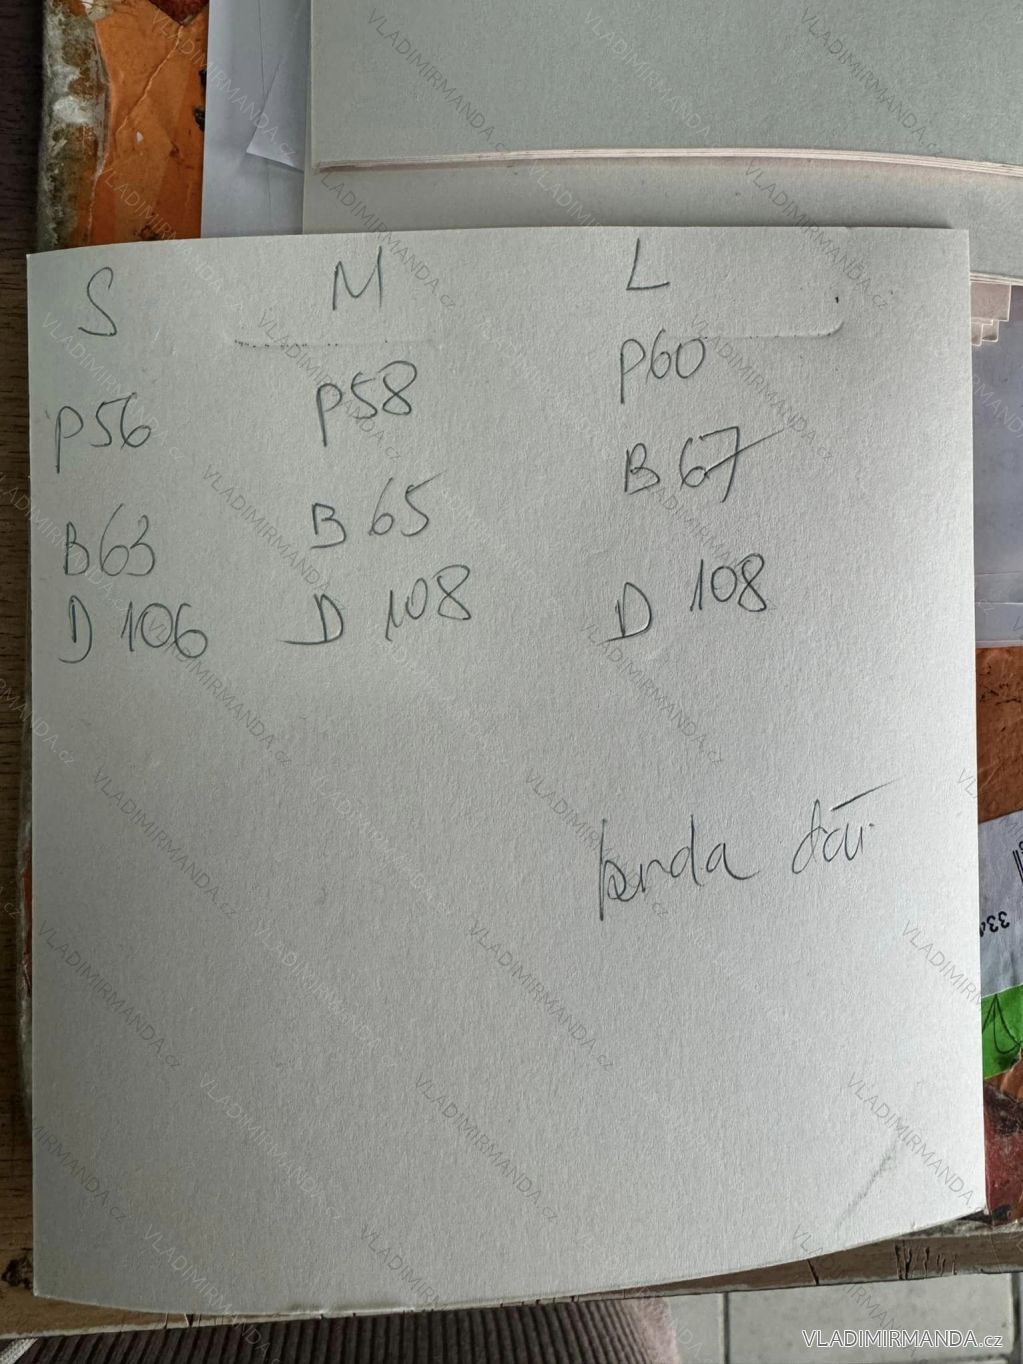 S M L
P56 P58 P60
B63 B65 B67
D 106 D 108 D 108
334
VLADIMIRMANDA.cz